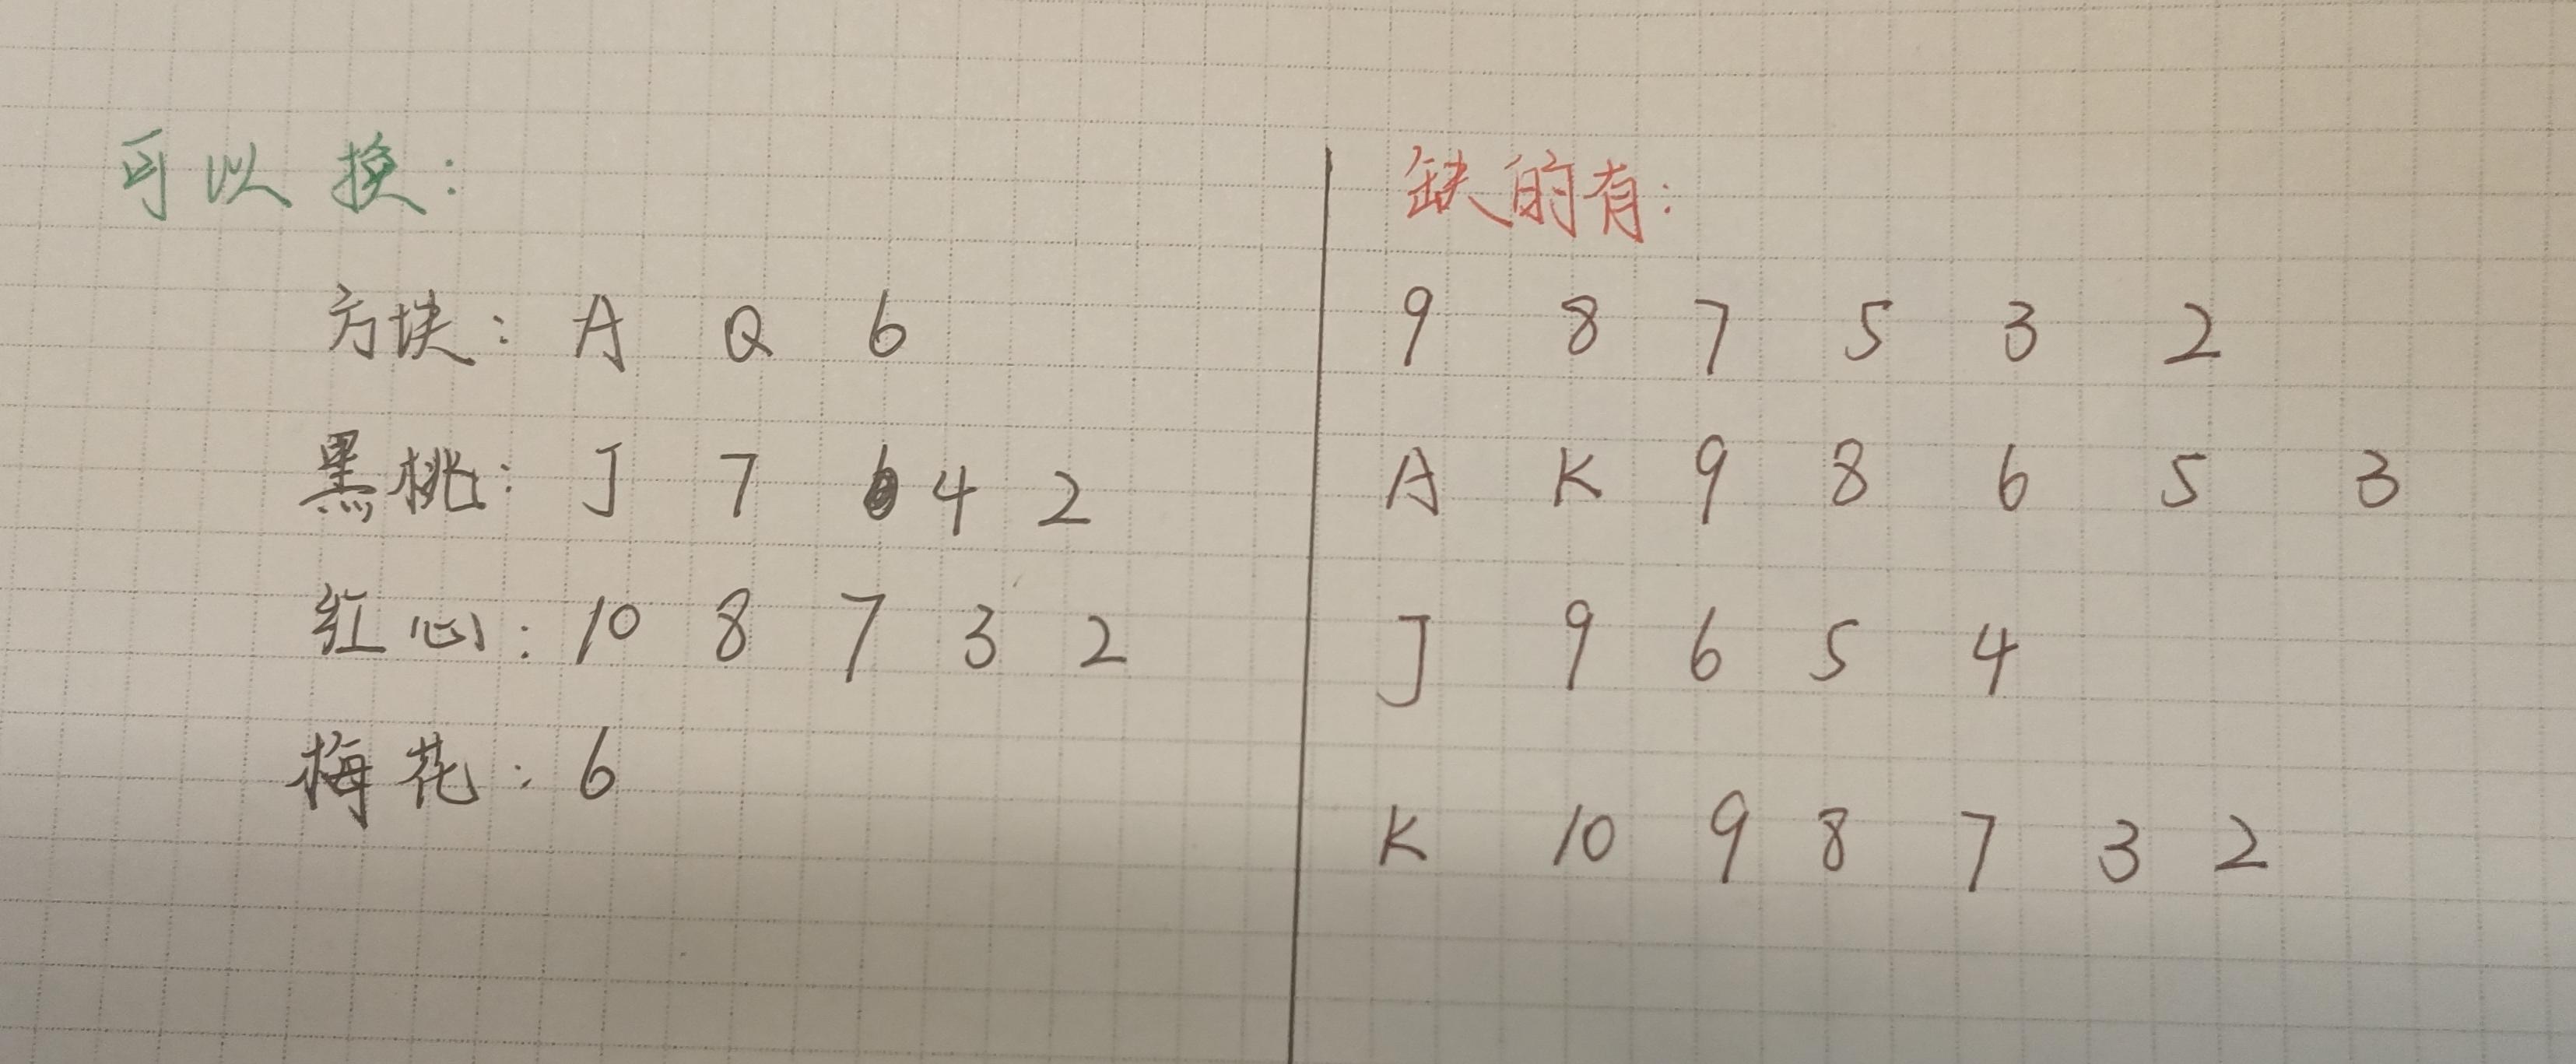 可以换:
方块: A Q 6
黑桃: J 7 4 2
红心: 10 8 7 3 2
梅花: 6
缺的有:
9 8 7 5 3 2
A K 9 8 6 5 3
J 9 6 5 4
K 10 9 8 7 3 2